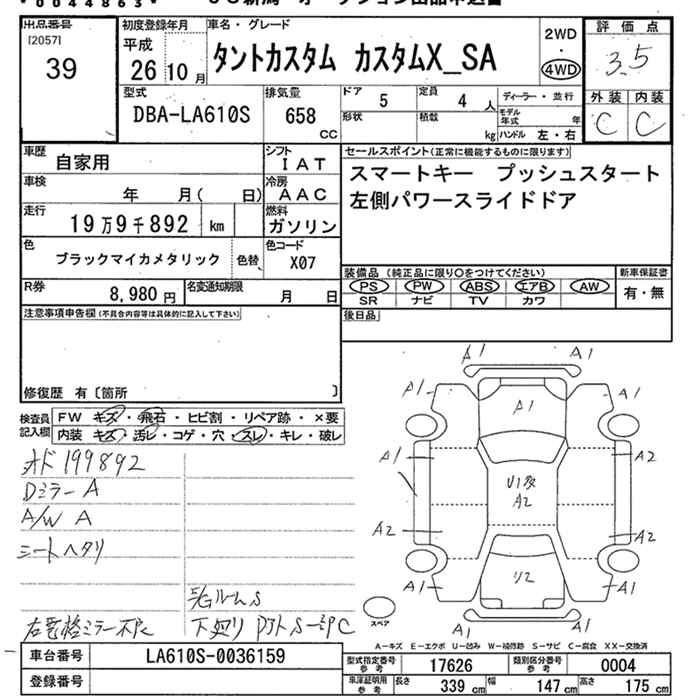 * 0044863 *
出品番号 [2057] 39
初度登録年月 平成 26 10 月
車名・グレード タントカスタム カスタムX_SA
2WD ・ 4WD
評価点 3.5
外装 C 内装 C
型式 DBA-LA610S
排気量 658 CC
ドア 5 定員 4 人
形状 積載 kg
ディーラー・並行
モデル年式 年
ハンドル 左・右
車歴 自家用
シフト IAT
車検 年 月( 日)
冷房 AAC
走行 19万9千892 km
燃料 ガソリン
色 ブラックマイカメタリック 色替
色コード X07
R券 8,980 円
名変通知期限 月 日
セールスポイント(正常に機能するものに限ります)
スマートキー プッシュスタート
左側パワースライドドア
装備品(純正品に限り○をつけてください)
PS PW ABS エアB AW
SR ナビ TV カワ
新車保証書 有・無
後日品
注意事項申告欄(不具合内容等は具体的に記入して下さい)
修復歴 有〔箇所 〕
検査員記入欄
FW キズ・飛石・ヒビ割・リペア跡・×要
内装 キズ・汚レ・コゲ・穴・スレ・キレ・破レ
オド199892
Dミラー A
A/W A
シートヘタリ
ルームS
右電格ミラー不良
A1 A1
A1 A1 A1
A1 A2
U1 A2
A2 A2
A1 A1
A1 A1
スペア
A-キズ E-エクボ U-凹み W-補修跡 S-サビ C-腐食 XX-交換済
車台番号 LA610S-0036159
登録番号
型式指定番号 参考 17626 類別区分番号 参考 0004
車庫証明用 参考 長さ 339 cm 幅 147 cm 高さ 175 cm